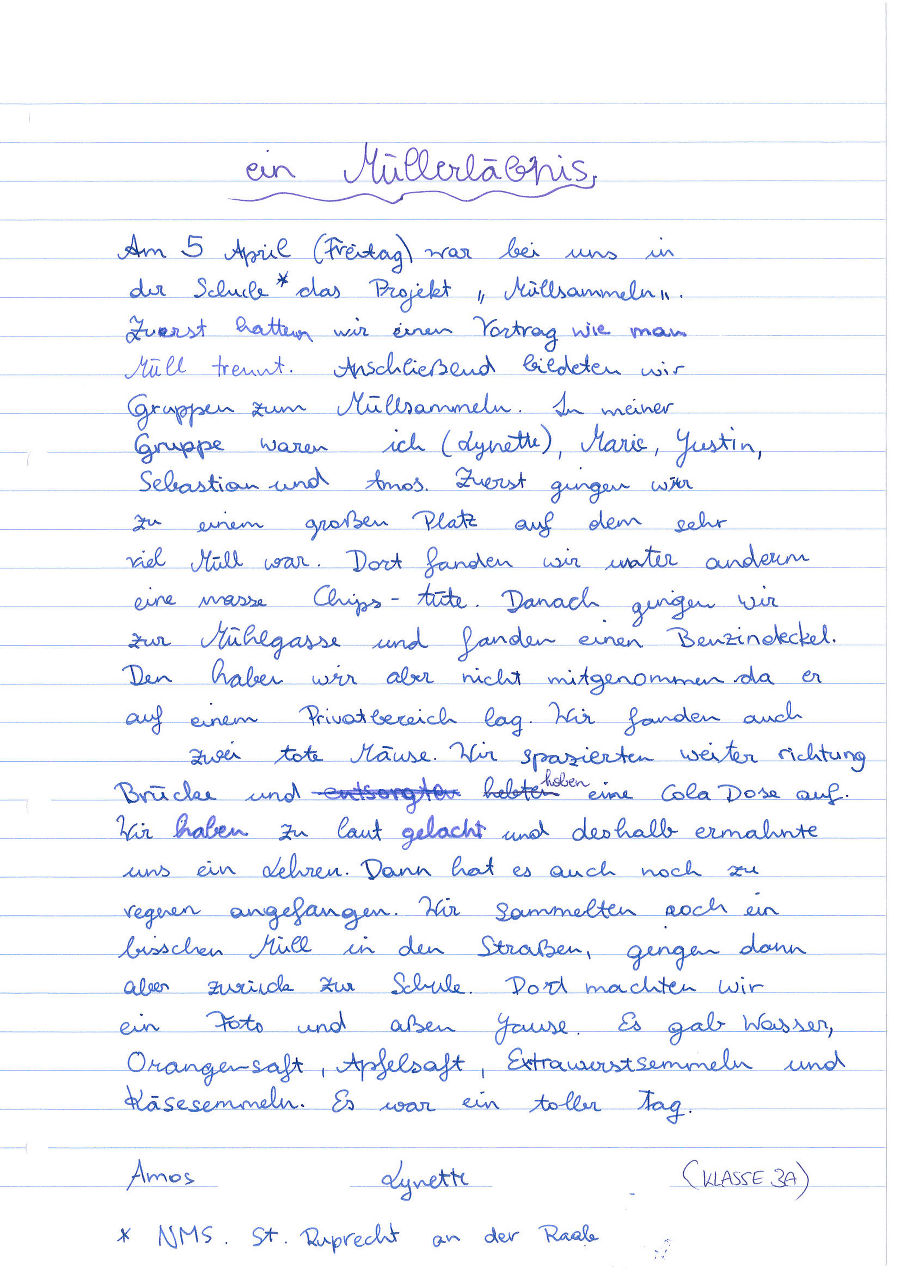 ein Müllerläbnis,
Am 5 April (Freitag) war bei uns in
der Schule * das Projekt „Müllsammeln„.
Zuerst hatten wir einen Vortrag wie man
Müll trennt. Anschließend bildeten wir
Gruppen zum Müllsammeln. In meiner
Gruppe waren ich (Lynette), Marie, Justin,
Sebastian und Amos. Zuerst gingen wir
zu einem großen Platz auf dem sehr
viel Müll war. Dort fanden wir unter anderm
eine masse Chips-tüte. Danach gingen wir
zur Mühlgasse und fanden einen Benzindeckel.
Den haben wir aber nicht mitgenommen da er
auf einem Privatbereich lag. Wir fanden auch
zwei tote Mäuse. Wir spazierten weiter richtung
Brücke und entsorgten hebten hoben eine Cola Dose auf.
Wir haben zu laut gelacht und deshalb ermahnte
uns ein Lehrer. Dann hat es auch noch zu
regnen angefangen. Wir sammelten noch ein
bisschen Müll in den Straßen, gingen dann
aber zurück zur Schule. Dort machten wir
ein Foto und aßen Jause. Es gab Wasser,
Orangensaft, Apfelsaft, Extrawurstsemmeln und
Käsesemmeln. Es war ein toller Tag.
Amos Lynette (KLASSE 3A)
* NMS. St. Ruprecht an der Raab